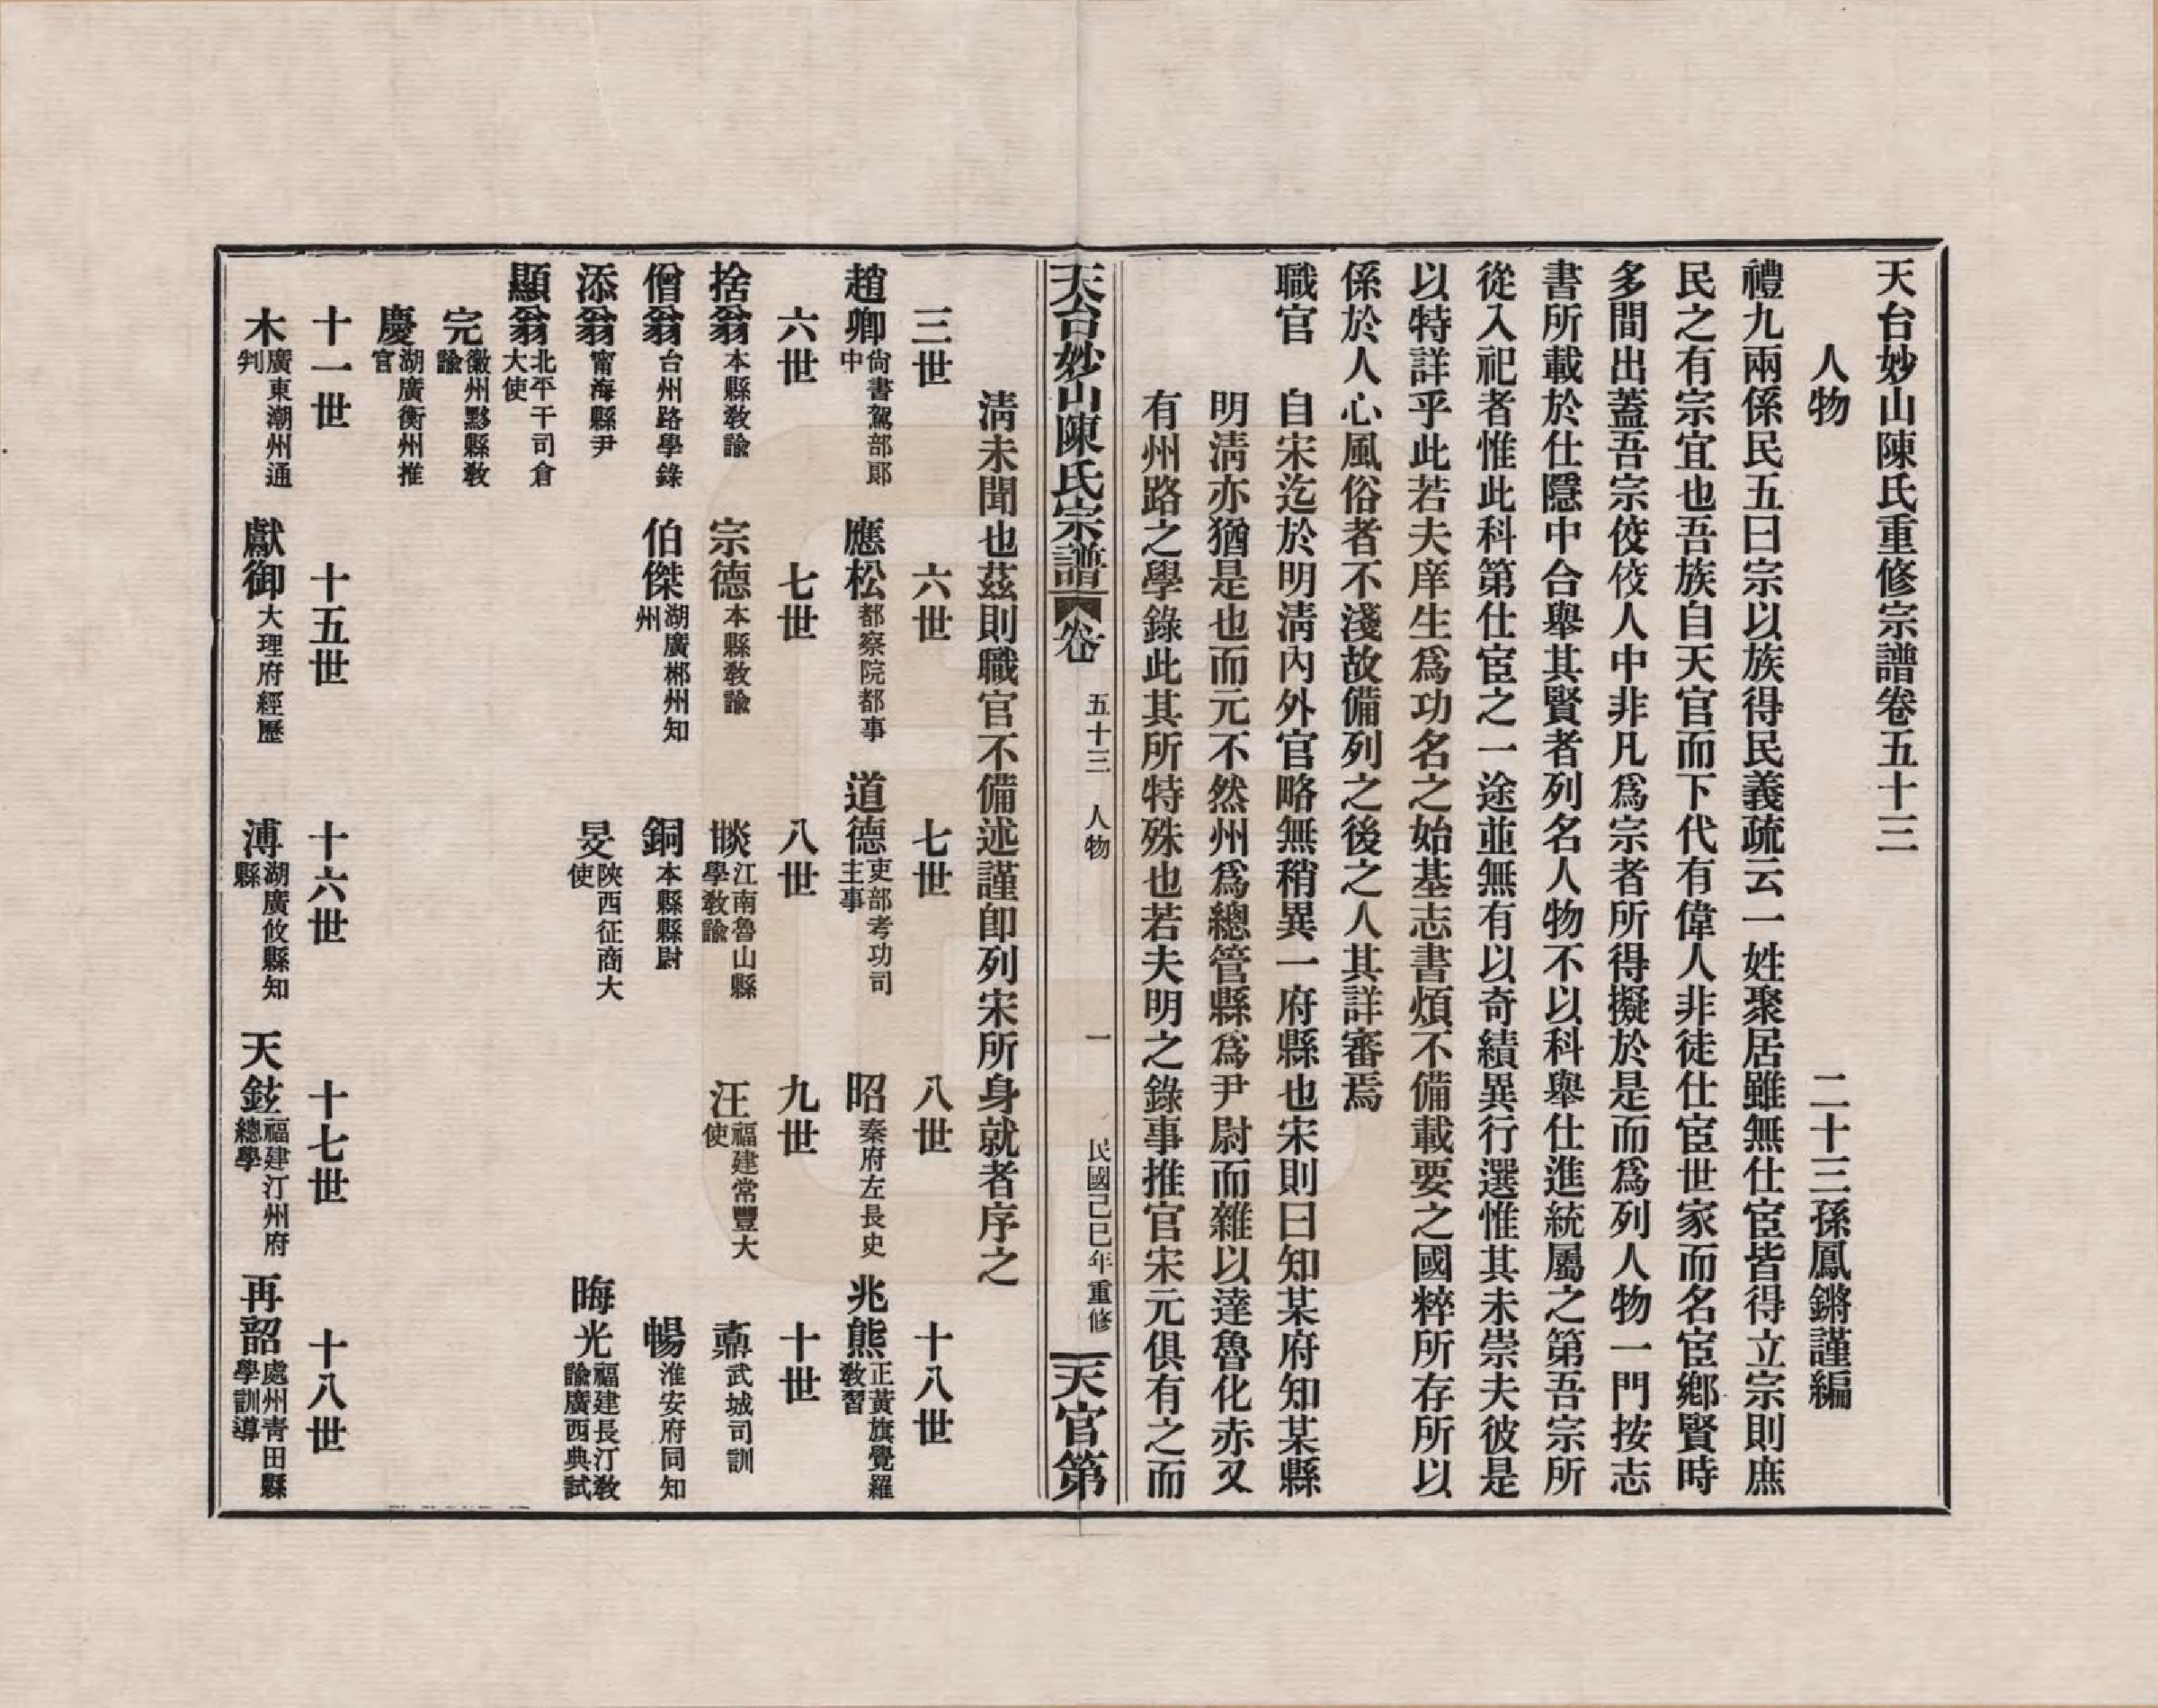 天台妙山陳氏重修宗譜卷五十三
人物　二十三孫鳳鏘謹編
禮九兩係民五曰宗以族得民義疏云一姓聚居雖無仕宦皆得立宗則庶
民之有宗宜也吾族自天官而下代有偉人非徒仕宦世家而名宦鄉賢時
多間出蓋吾宗佼佼人中非凡爲宗者所得擬於是而爲列人物一門按志
書所載於仕隱中合舉其賢者列名人物不以科舉仕進統屬之第吾宗所
從入祀者惟此科第仕宦之一途並無有以奇績異行選惟其未崇夫彼是
以特詳乎此若夫庠生爲功名之始基志書煩不備載要之國粹所存所以
係於人心風俗者不淺故備列之後之人其詳審焉
職官　自宋迄於明淸內外官略無稍異一府縣也宋則曰知某府知某縣
明淸亦猶是也而元不然州爲總管縣爲尹尉而雜以達魯化赤又
有州路之學錄此其所特殊也若夫明之錄事推官宋元俱有之而
天台妙山陳氏宗譜　卷　五十三　人物　一　民國己巳年重修　天官第
淸未聞也茲則職官不備述謹卽列宋所身就者序之
三世　六世　七世　八世　十八世
趙卿 尙書駕部郞中　應松 都察院都事　道德 吏部考功司主事　昭 秦府左長史　兆熊 正黃旗覺羅教習
六世　七世　八世　九世　十世
捨翁 本縣敎諭　宗德 本縣敎諭　睒 江南魯山縣學敎諭　汪 福建常豐大使　鼒 武城司訓
僧翁 台州路學錄　伯傑 湖廣郴州知州　銅 本縣縣尉　暢 淮安府同知
添翁 甯海縣尹　旻 陝西征商大使　晦光 福建長汀敎諭廣西典試
顯翁 北平干司倉大使
完 徽州黟縣敎諭
慶 湖廣衡州推官
十一世　十五世　十六世　十七世　十八世
木 廣東潮州通判　獻御 大理府經歷　溥 湖廣攸縣知縣　天鉉 福建汀州府總學　再韶 處州靑田縣學訓導